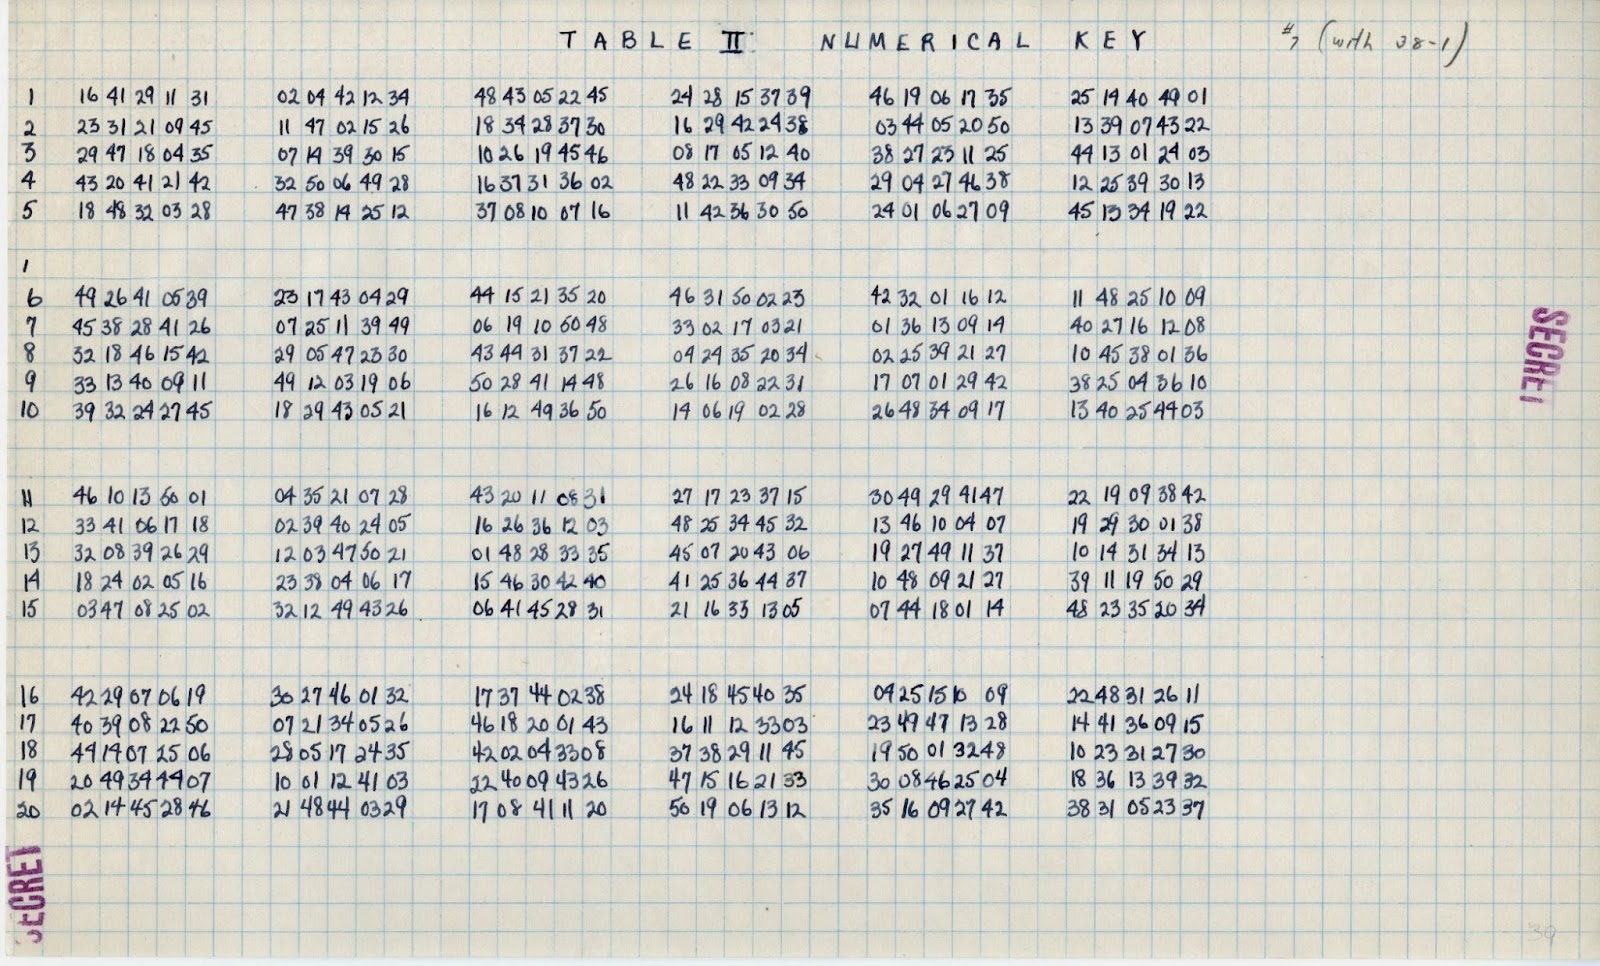 TABLE II NUMERICAL KEY #7 (with 38-1)
1 16 41 29 11 31 02 04 42 12 34 48 43 05 22 45 24 28 15 37 39 46 19 06 17 35 25 14 40 49 01
2 23 31 21 09 45 11 47 02 15 26 18 34 28 37 30 16 29 42 24 38 03 44 05 20 50 13 39 07 43 22
3 29 47 18 04 35 07 14 39 30 15 10 26 19 45 46 08 17 05 12 40 38 27 23 11 25 44 13 01 24 03
4 43 20 41 21 42 32 50 06 49 28 16 37 31 36 02 48 22 33 09 34 29 04 27 46 38 12 25 39 30 13
5 18 48 32 03 28 47 38 14 25 12 37 08 10 07 16 11 42 36 30 50 24 01 06 27 09 45 13 34 19 22
1
6 49 26 41 05 39 23 17 43 04 29 44 15 21 35 20 46 31 50 02 23 42 32 01 16 12 11 48 25 10 09
7 45 38 28 41 26 07 25 11 39 49 06 19 10 50 48 33 02 17 03 21 01 36 13 09 14 40 27 16 12 08
8 32 18 46 15 42 29 05 47 23 30 43 44 31 37 22 04 24 35 20 34 02 25 39 21 27 10 45 38 01 36
9 33 13 40 09 11 49 12 03 19 06 50 28 41 14 48 26 16 08 22 31 17 07 01 29 42 38 25 04 36 10
10 39 32 24 27 45 18 29 43 05 21 16 12 49 36 50 14 06 19 02 28 26 48 34 09 17 13 40 25 44 03
11 46 10 13 50 01 04 35 21 07 28 43 20 11 08 31 27 17 23 37 15 30 49 29 41 47 22 19 09 38 42
12 33 41 06 17 18 02 39 40 24 05 16 26 36 12 03 48 25 34 45 32 13 46 10 04 07 19 29 30 01 38
13 32 08 39 26 29 12 03 47 50 21 01 48 28 33 35 45 07 20 43 06 19 27 49 11 37 10 14 31 34 13
14 18 24 02 05 16 23 38 04 06 17 15 46 30 42 40 41 25 36 44 37 10 48 09 21 27 39 11 19 50 29
15 03 47 08 25 02 32 12 49 43 26 06 41 45 28 31 21 16 33 13 05 07 44 18 01 14 48 23 35 20 34
16 42 29 07 06 19 30 27 46 01 32 17 37 44 02 38 24 18 45 40 35 04 25 15 10 09 22 48 31 26 11
17 40 39 08 22 50 07 21 34 05 26 46 18 20 01 43 16 11 12 33 03 23 49 47 13 28 14 41 36 09 15
18 44 14 07 25 06 28 05 17 24 35 42 02 04 33 08 37 38 29 11 45 19 50 01 32 48 10 23 31 27 30
19 20 49 34 44 07 10 01 12 41 03 22 40 09 43 26 47 15 16 21 33 30 08 46 25 04 18 36 13 39 32
20 02 14 45 28 46 21 48 44 03 29 17 08 41 11 20 50 19 06 13 12 35 16 09 27 42 38 31 05 23 37
SECRET
SECRET
39